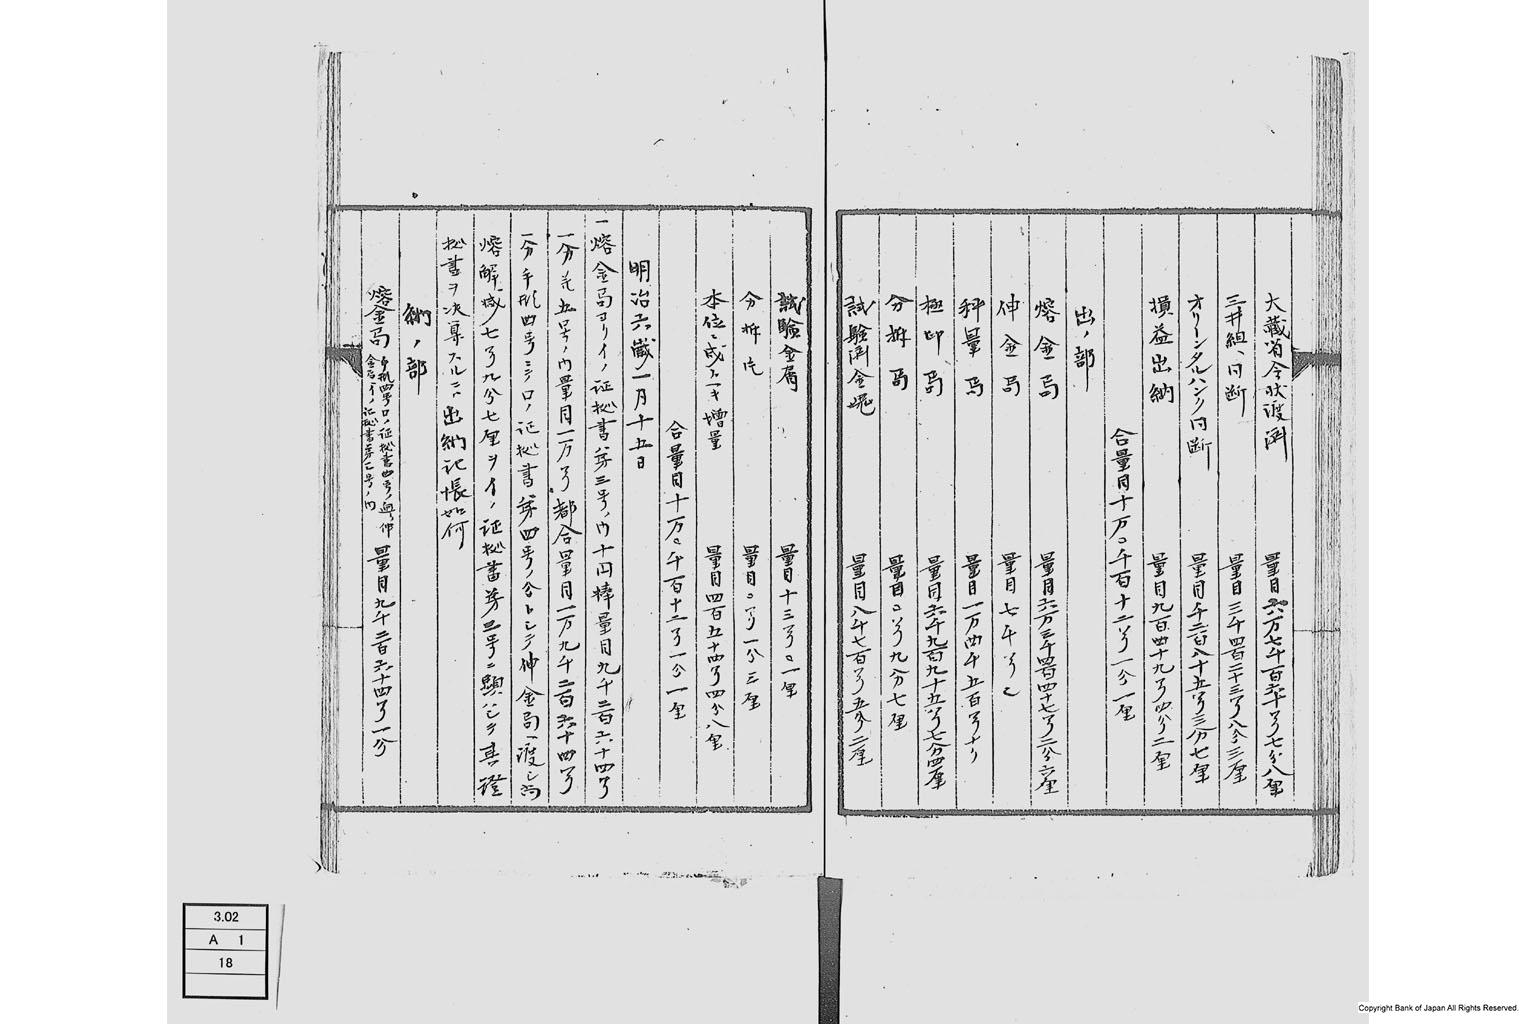 大蔵省金状渡済 量目六万七千百六十ヲ七分八厘
三井組、同断 量目三千四百二十三ヲ八分三厘
オリーンタルハンク同断 量目千二百八十五ヲ三分七厘
損益出納 量目九百四十九ヲ四分二厘
合量目十一万〇千百十二ヲ一分一厘
出ノ部
熔金局 量目六万三千四百四十七ヲ二分六厘
伸金局 量目七千ヲ
秤量局 量目一万四千五百ヲ
極印局 量目六千九百九十五ヲ七分四厘
分析局 量目〇ヲ九分七厘
試験済金塊 量目八千七百ヲ五分二厘
試験金屑 量目十三ヲ〇一厘
分析片 量目〇ヲ一分三厘
本位ニ成スヘキ増量 量目四百五十四ヲ四分八厘
合量目十一万〇千百十二ヲ一分一厘
明治六歳一月十五日
一熔金局ヨリイノ証拠書第三号ノ内十円棒量目九千二百六十四ヲ
一分并五号ノ内量目一万ヲ都合量目一万九千二百六十四ヲ
一分手形四号ニシテロノ証拠書第四号ノ分トシテ伸金局ヘ渡シ尚
熔解減七ヲ九分七厘ヲイノ証拠書第三号ニ顕ハシテ其證
拠書ヲ決算スルニハ出納記帳如何
納ノ部
熔金局 手形四号ロノ証拠書四号ノ通リ伸
金局ヨリイノ証拠書第三号ノ内 量目九千二百六十四ヲ一分
3.02
A 1
18
Copyright Bank of Japan All Rights Reserved.